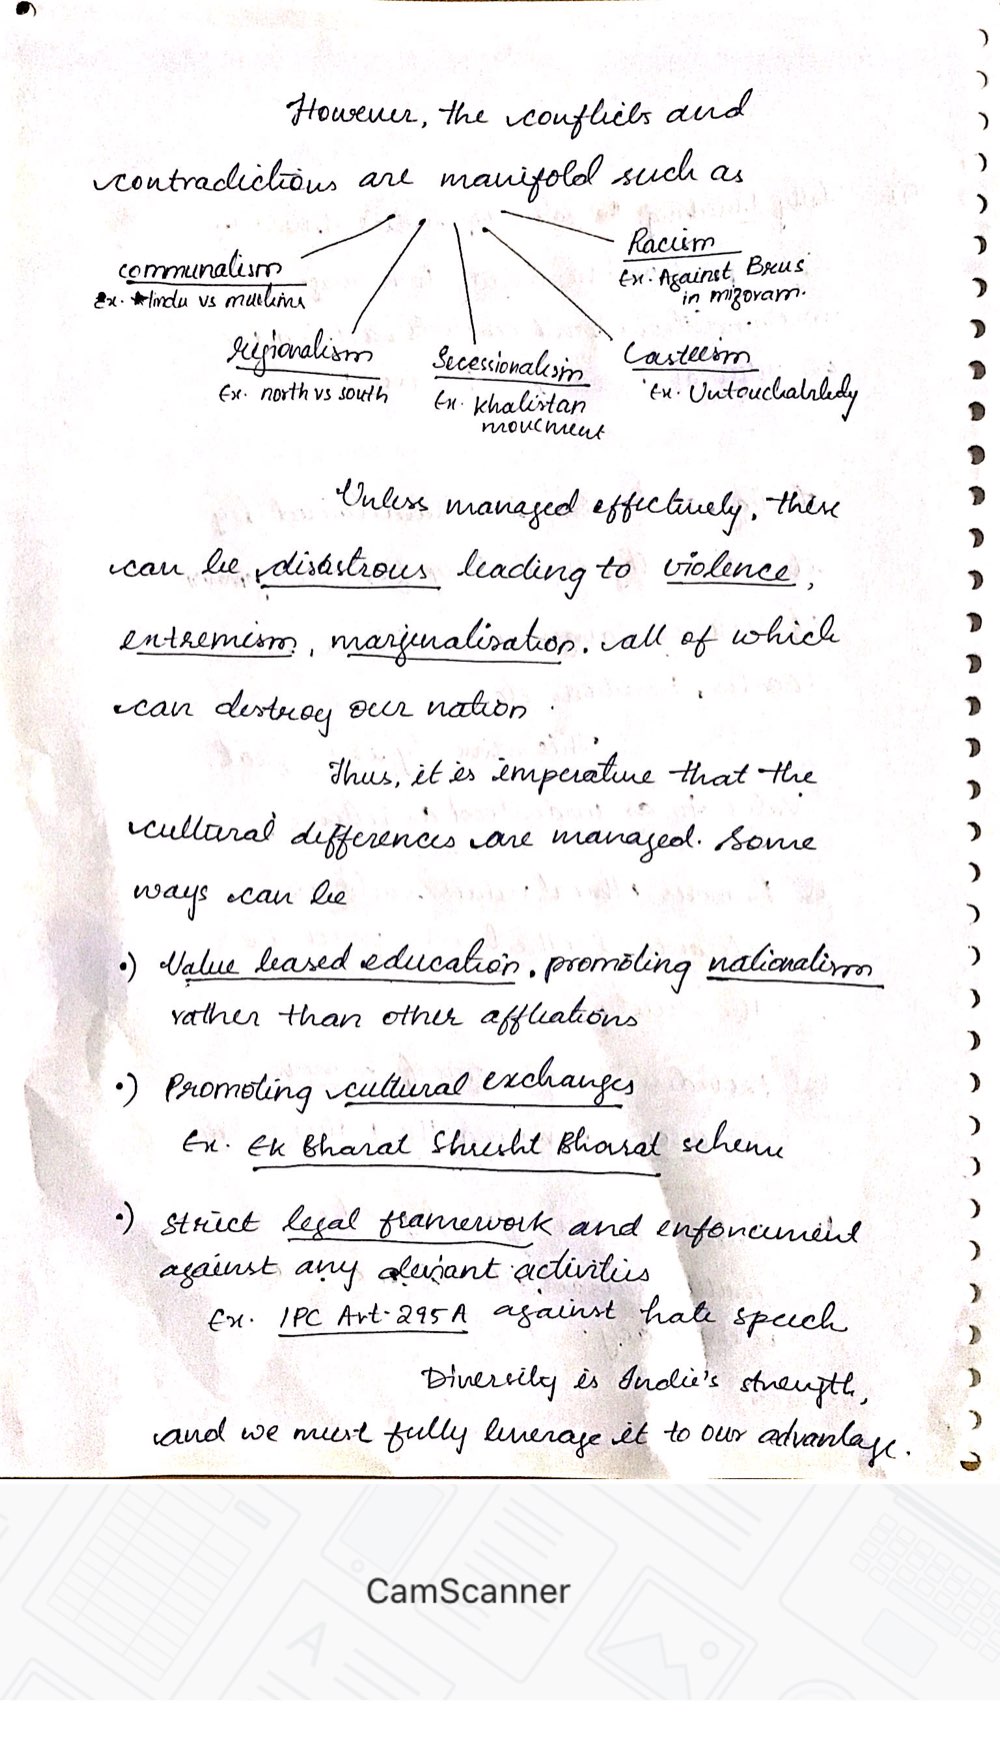 However, the conflicts and
contradictions are manifold such as
communalism
Ex. Hindu vs muslims
regionalism
Ex. north vs south
Secessionalism
Ex. Khalistan
movement
Casteism
Ex. Untouchability
Racism
Ex. Against Brus
in mizoram.
Unless managed effectively, these
can be disastrous leading to violence,
extremism, marginalisation. all of which
can destroy our nation.
Thus, it is imperative that the
cultural differences are managed. Some
ways can be
•) Value based education, promoting nationalism
rather than other affliations
•) Promoting cultural exchanges
Ex. Ek Bharat Shresht Bharat scheme
•) Strict legal framework and enforcement
against any deviant activities
Ex. IPC Art-295A against hate speech
Diversity is India's strength,
and we must fully leverage it to our advantage.
CamScanner